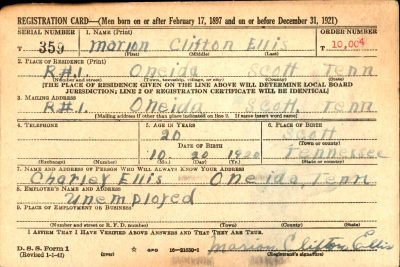 REGISTRATION CARD—(Men born on or after February 17, 1897 and on or before December 31, 1921)
SERIAL NUMBER 1. NAME (Print) ORDER NUMBER
T 359 Marion Clifton Ellis T 10,004
(First) (Middle) (Last)
2. PLACE OF RESIDENCE (Print)
R#1. Oneida Scott Tenn
(Number and street) (Town, township, village, or city) (County) (State)
[THE PLACE OF RESIDENCE GIVEN ON THE LINE ABOVE WILL DETERMINE LOCAL BOARD
JURISDICTION; LINE 2 OF REGISTRATION CERTIFICATE WILL BE IDENTICAL]
3. MAILING ADDRESS
R#1. Oneida Scott, Tenn
[Mailing address if other than place indicated on line 2. If same insert word same]
4. TELEPHONE 5. AGE IN YEARS 6. PLACE OF BIRTH
20 Scott
DATE OF BIRTH (Town or county)
10 20 1920 Tennessee
(Exchange) (Number) (Mo.) (Day) (Yr.) (State or country)
7. NAME AND ADDRESS OF PERSON WHO WILL ALWAYS KNOW YOUR ADDRESS
Charley Ellis Oneida, Tenn
8. EMPLOYER'S NAME AND ADDRESS
Unemployed
9. PLACE OF EMPLOYMENT OR BUSINESS
(Number and street or R. F. D. number) (Town) (County) (State)
I AFFIRM THAT I HAVE VERIFIED ABOVE ANSWERS AND THAT THEY ARE TRUE.
D. S. S. Form 1
(Revised 1-1-42) (over) GPO 16-21630-1 Marion Clifton Ellis
(Registrant's signature)